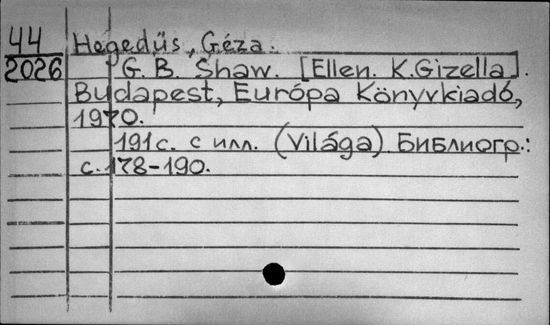 44 Hegedűs, Géza.
2026 G. B. Shaw. [Ellen. K.Gizella].
Budapest, Európa Könyvkiadó,
1970.
191с. с илл. (Világa) Библиогр.:
с.178-190.